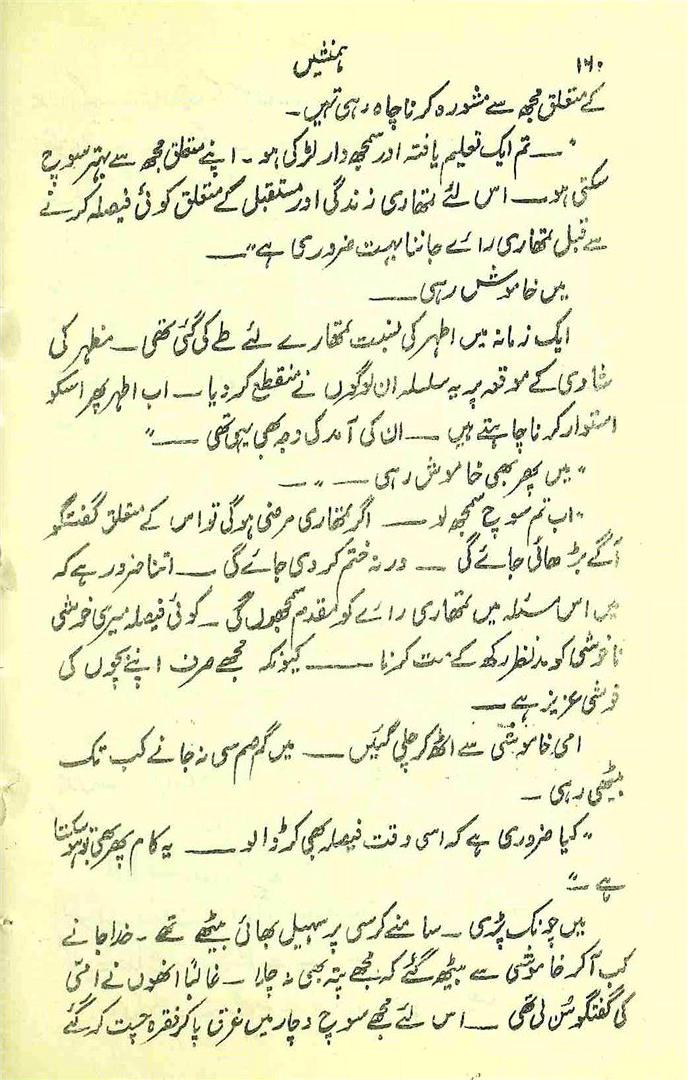 ہمنشیں ۱۶۰
کے متعلق مجھ سے مشورہ کرنا چاہ رہی تہیں۔
"— تم ایک تعلیم یافتہ اور سمجھ دار لڑکی ہو۔ اپنے متعلق مجھ سے بہتر سوچ
سکتی ہو — اس لئے تمھاری زندگی اور مستقبل کے متعلق کوئی فیصلہ کرنے
سے قبل تمھاری رائے جاننا بہت ضروری ہے" —
میں خاموش رہی —
ایک زمانہ میں اطہر کی نسبت تمھارے لئے طے کی گئی تھی — مظہر کی
شادی کے موقعہ پر یہ سلسلہ ان لوگوں نے منقطع کر دیا — اب اطہر پھر اسکو
استوار کرنا چاہتے ہیں — ان کی آمد کی وجہ بھی یہی تھی —"
"میں پھر بھی خاموش رہی —"—
"اب تم سوچ سمجھ لو — اگر تمھاری مرضی ہوگی تو اس کے متعلق گفتگو
آگے بڑھائی جائے گی — ورنہ ختم کر دی جائے گی — اتنا ضرور ہے کہ
میں اس مسئلہ میں تمھاری رائے کو مقدم سمجھوں گی۔ کوئی فیصلہ میری خوشی
ناخوشی کو مدنظر رکھ کے مت کرنا — کیونکہ مجھے صرف اپنے بچوں کی
خوشی عزیز ہے —
امی خاموشی سے اٹھ کر چلی گئیں — میں گم صم سی نہ جانے کب تک
بیٹھی رہی —
"کیا ضروری ہے کہ اسی وقت فیصلہ بھی کر ڈالو — یہ کام پھر بھی تو ہو سکتا
ہے —"
میں چونک پڑی — سامنے کرسی پر سہیل بھائی بیٹھے تھے۔ خدا جانے
کب آکر خاموشی سے بیٹھ گئے کہ مجھے پتہ بھی نہ چلا — غالباً انھوں نے امّی
کی گفتگو سُن لی تھی — اس لئے مجھے سوچ وچار میں غرق پا کر فقرہ چست کر گئے